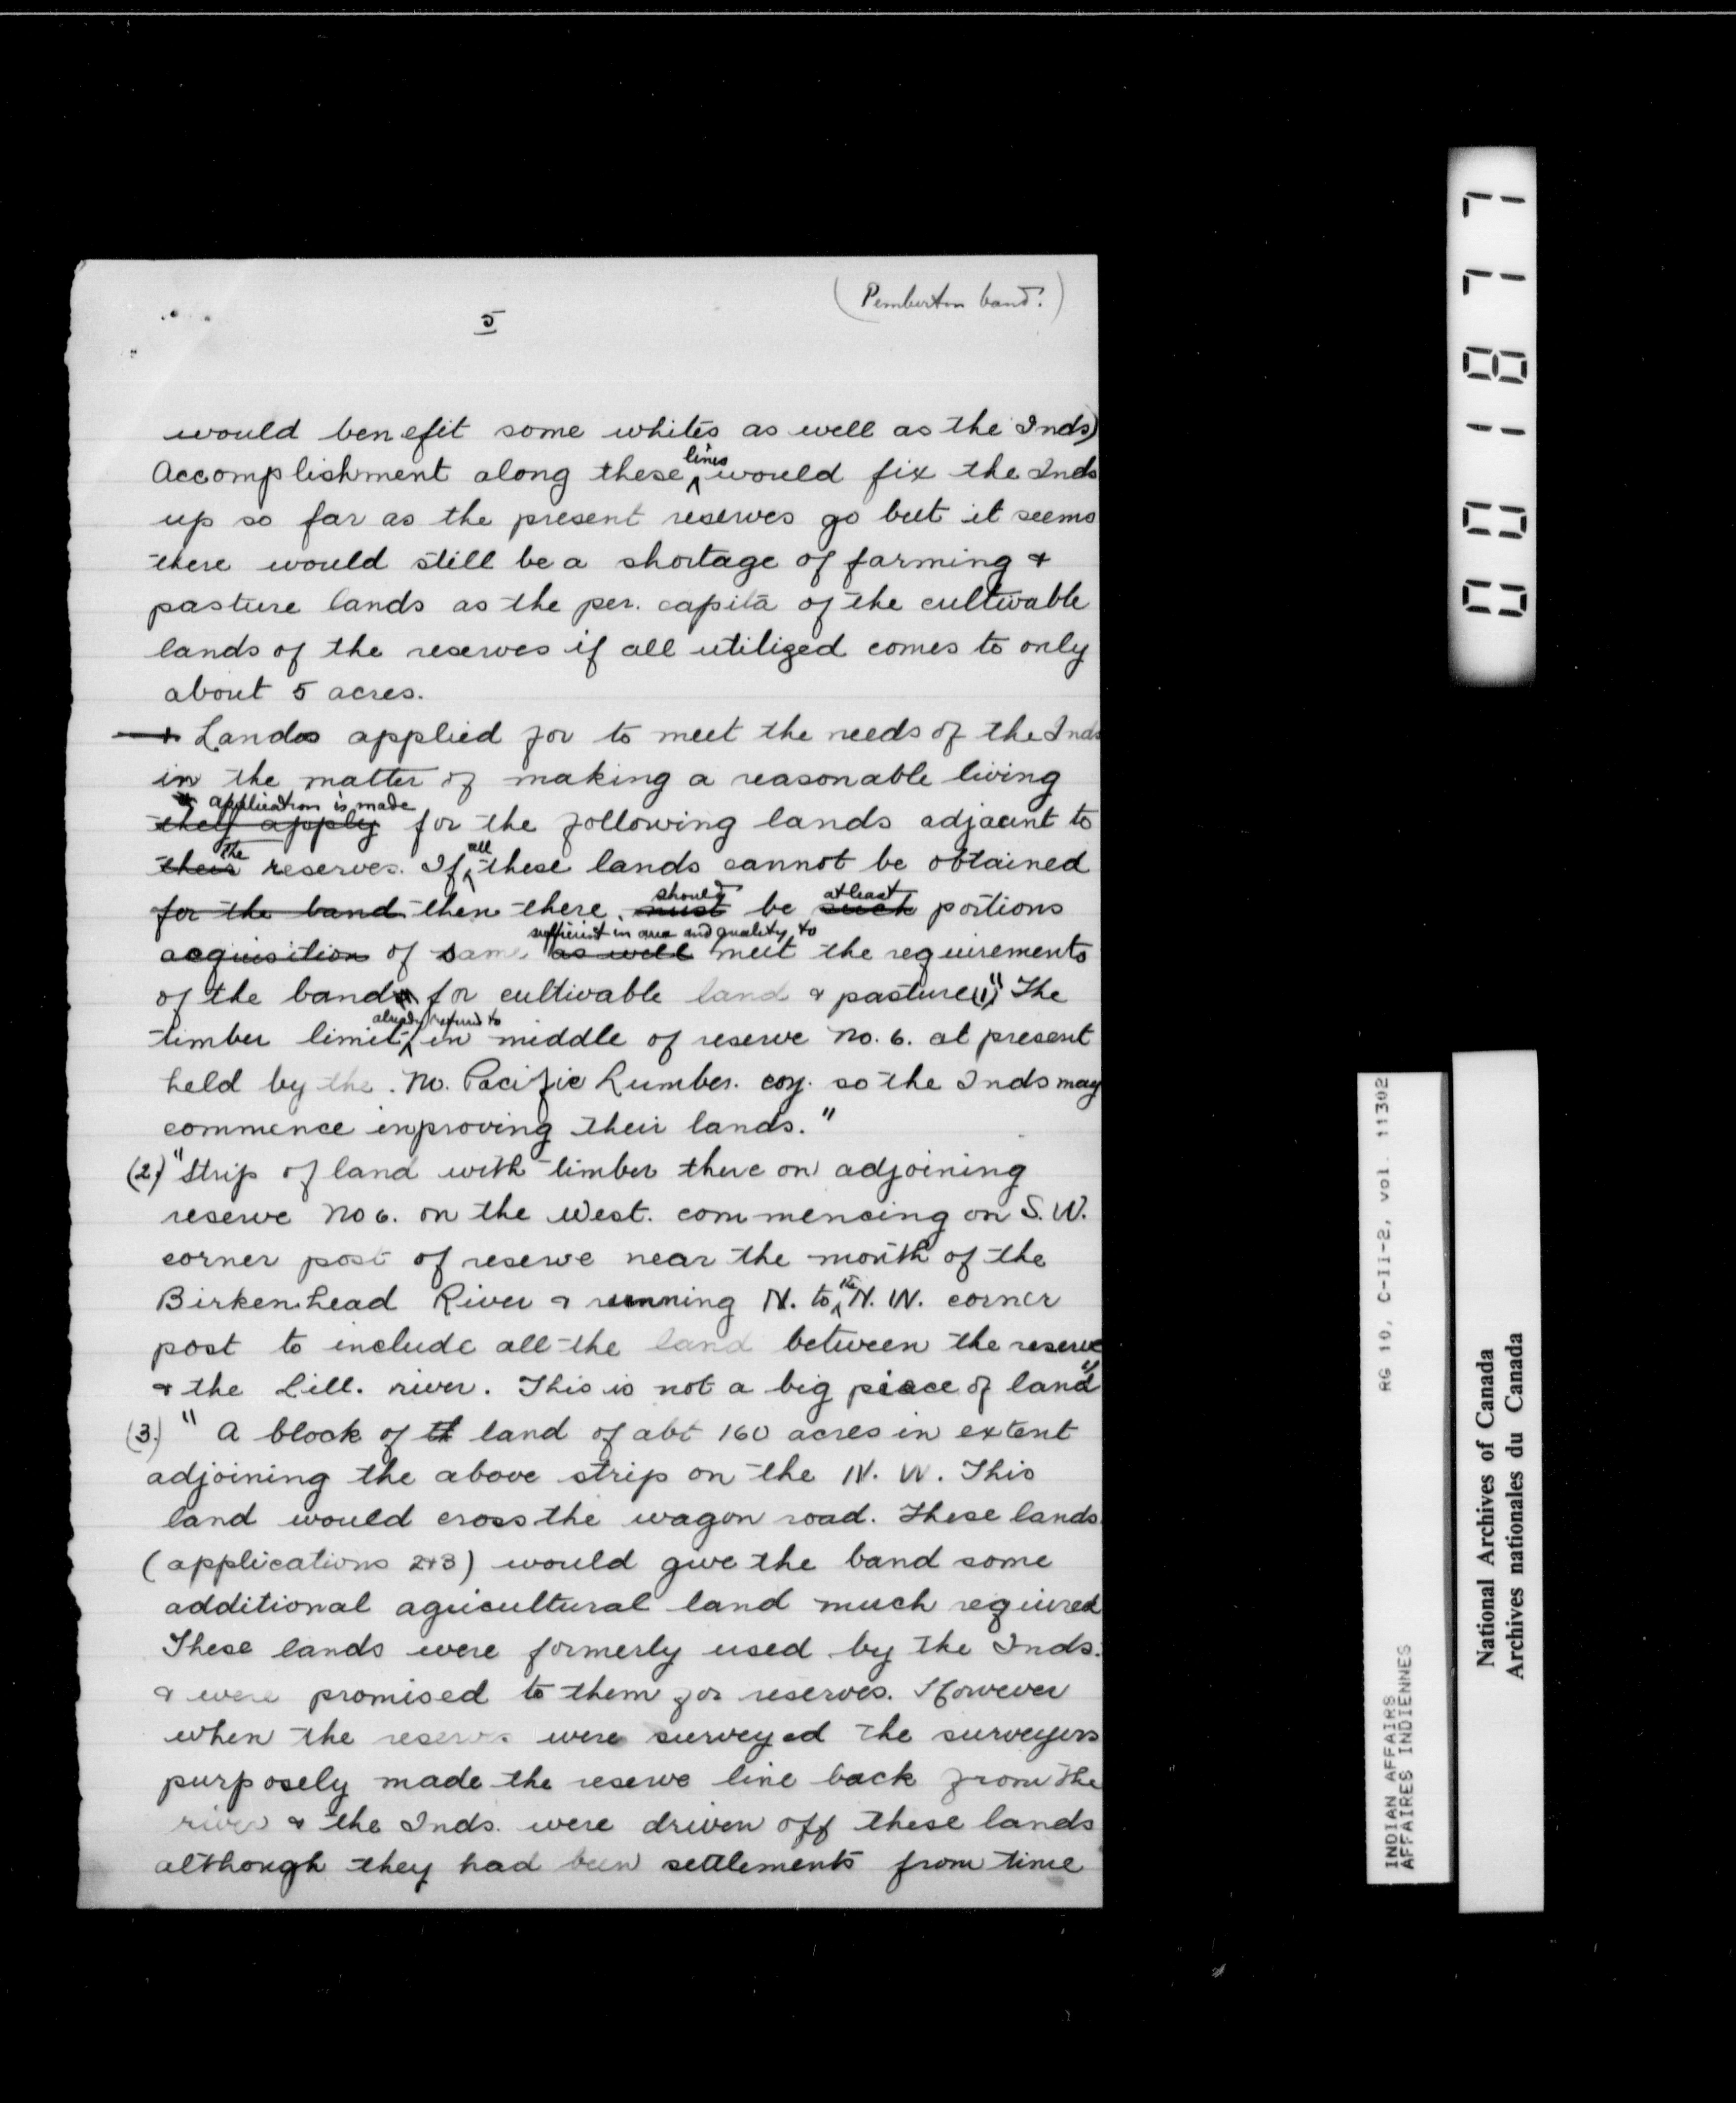 (Pemberton band.)
5
would benefit some whites as well as the Inds)
Accomplishment along these lines would fix the Inds
up so far as the present reserves go but it seems
there would still be a shortage of farming &
pasture lands as the per. capita of the cultivable
lands of the reserves if all utilized comes to only
about 5 acres.
Lands applied for to meet the needs of the Inds
in the matter of making a reasonable living
application is made
they apply for the following lands adjacent to
the all
their reserves. If these lands cannot be obtained
should at least
for the band then there must be such portions
sufficient in area and quality to
acquisition of same as well meet the requirements
of the band for cultivable land & pasture (1) " The
already referred to
timber limit in middle of reserve No. 6. at present
held by the . M. Pacific Lumber. coy. so the Inds may
commence inproving their lands."
(2) "Strip of land with timber there on adjoining
reserve No 6. on the West. commencing on S. W.
corner post of reserve near the mouth of the
Birkenhead River & running N. to the N. W. corner
post to include all the land between the reserve
& the Lill. river. This is not a big piece of land"
(3.) " A block of th land of abt 160 acres in extent
adjoining the above strip on the N. W. This
land would cross the wagon road. These lands
(applications 2 & 3) would give the band some
additional agricultural land much required
These lands were formerly used by the Inds.
& were promised to them for reserves. However
when the reserves were surveyed the surveyors
purposely made the reserve line back from the
river & the Inds. were driven off these lands
although they had been settlements from time
001877
INDIAN AFFAIRS RG 10, C-II-2, vol. 11302
AFFAIRES INDIENNES
National Archives of Canada
Archives nationales du Canada